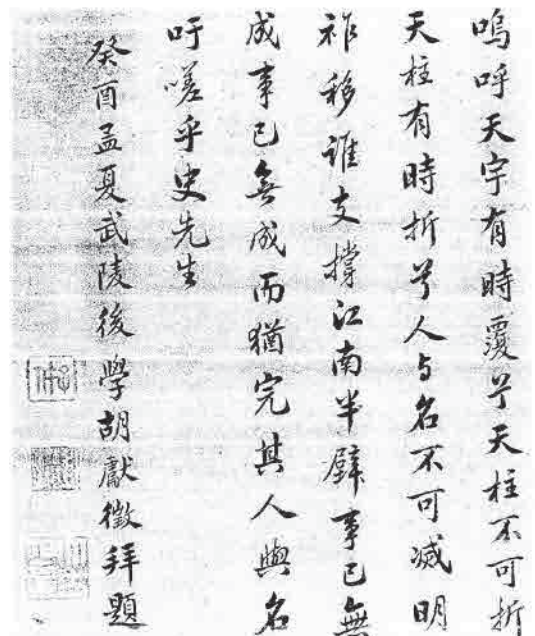 嗚呼天宇有時覆兮天柱不可折
天柱有時折兮人与名不可滅明
祚移誰支撐江南半壁事已無
成事已無成而猶完其人與名
吁嗟乎史先生
癸酉孟夏武陵後學胡獻徵拜題